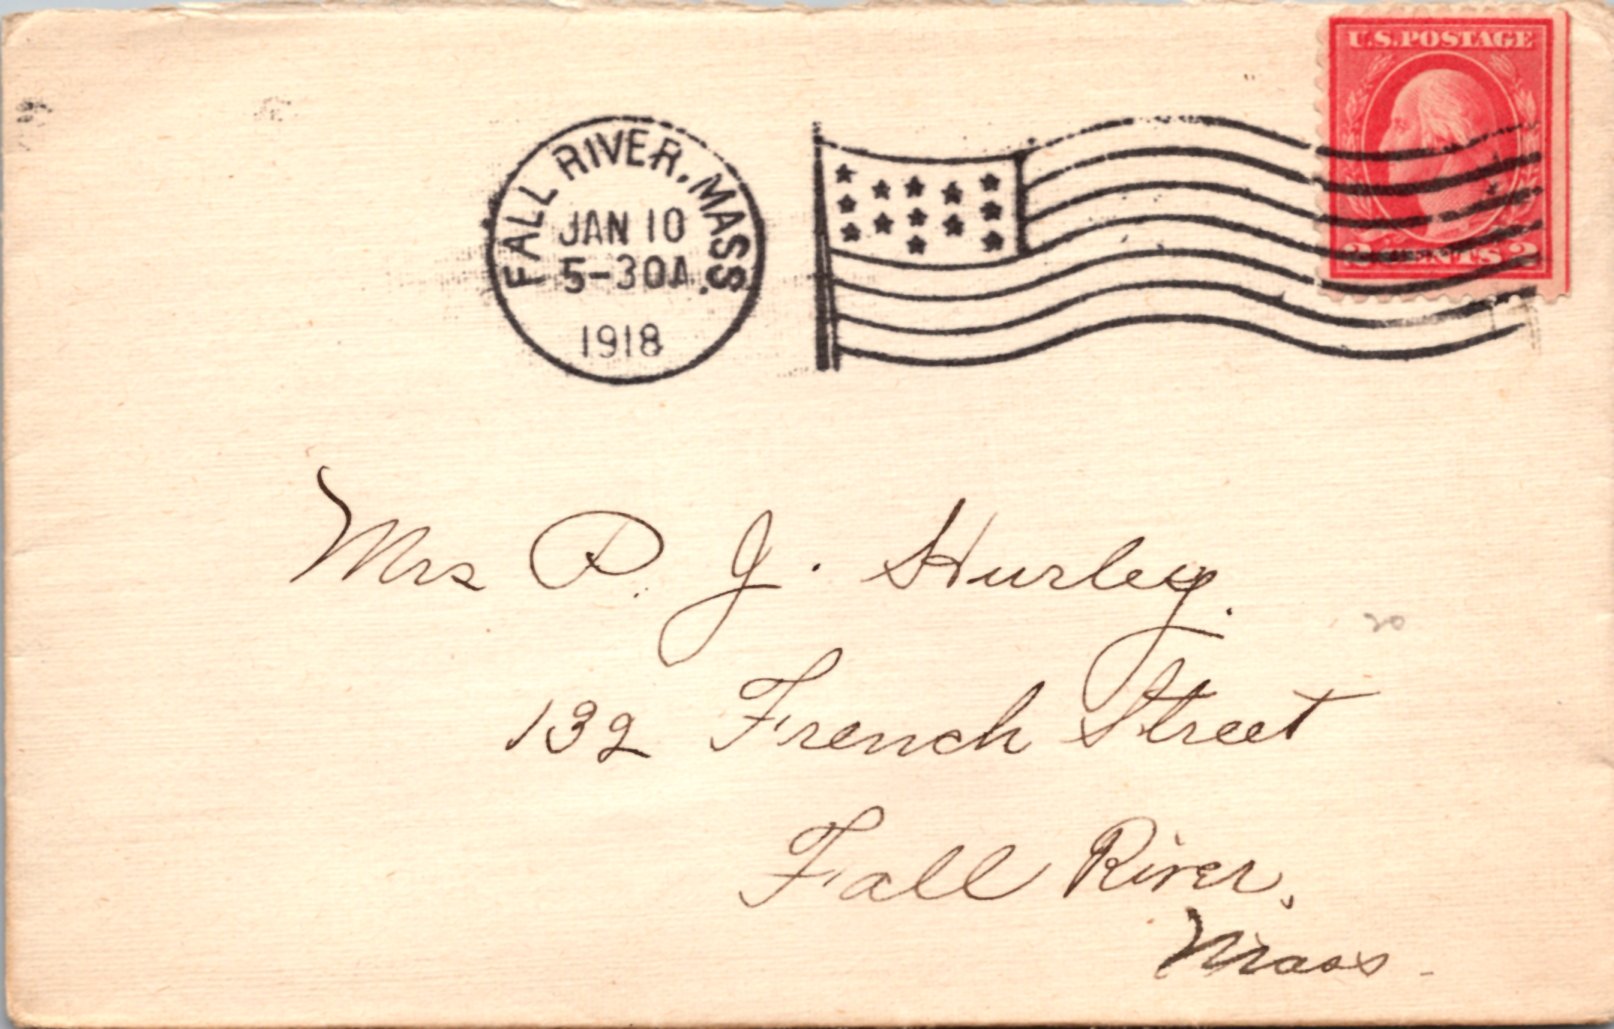 U.S. POSTAGE
2 CENTS 2
FALL RIVER, MASS.
JAN 10
5-30A
1918
Mrs P. J. Hurley.
20
132 French Street
Fall River,
Mass.